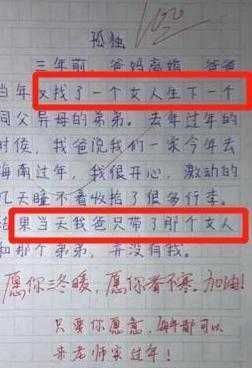 100
孤独
三年前，爸妈离婚，爸爸
当年又找了一个女人生下一个
同父异母的弟弟。去年过年的
时候，我爸说我们一家今年去
海南过年，我很开心，激动的
几天睡不着收拾了很多行李。
结果当天我爸只带了那个女人
和那个弟弟，并没有我。
愿你三冬暖，愿你春不寒，加油！
只要你愿意，每年都可以
来老师家过年！